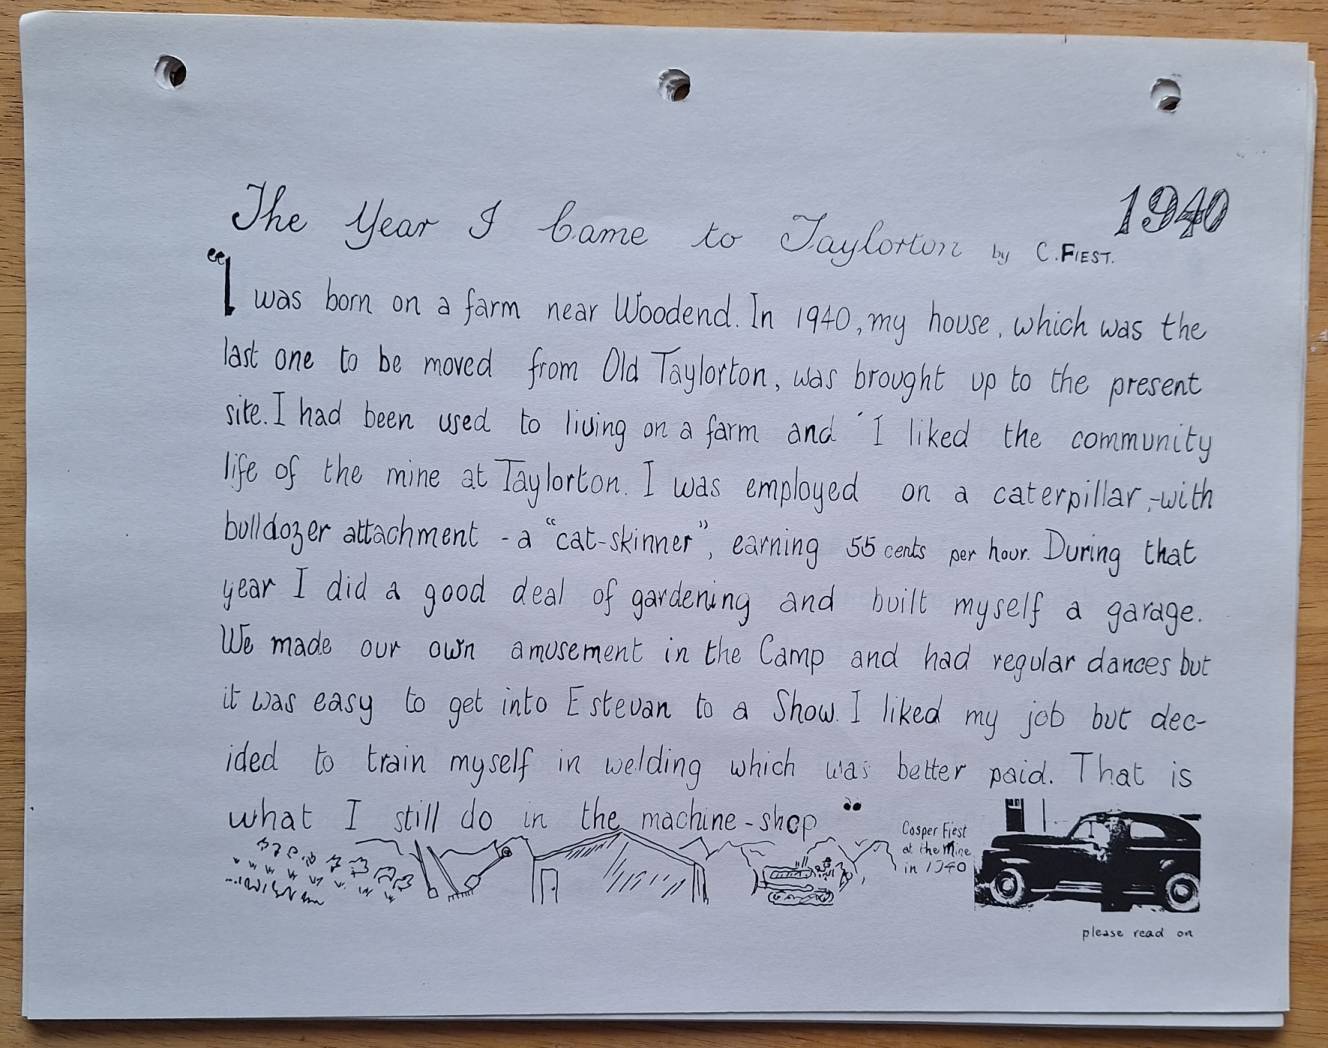 1940
The Year I Came to Taylorton by C. FIEST.
"I was born on a farm near Woodend. In 1940, my house, which was the
last one to be moved from Old Taylorton, was brought up to the present
site. I had been used to living on a farm and I liked the community
life of the mine at Taylorton. I was employed on a caterpillar,-with
bulldozer attachment - a "cat-skinner", earning 55 cents per hour. During that
year I did a good deal of gardening and built myself a garage.
We made our own amusement in the Camp and had regular dances but
it was easy to get into Estevan to a Show. I liked my job but dec-
ided to train myself in welding which was better paid. That is
what I still do in the machine-shop"
Casper Fiest
at the Mine
in 1940
please read on